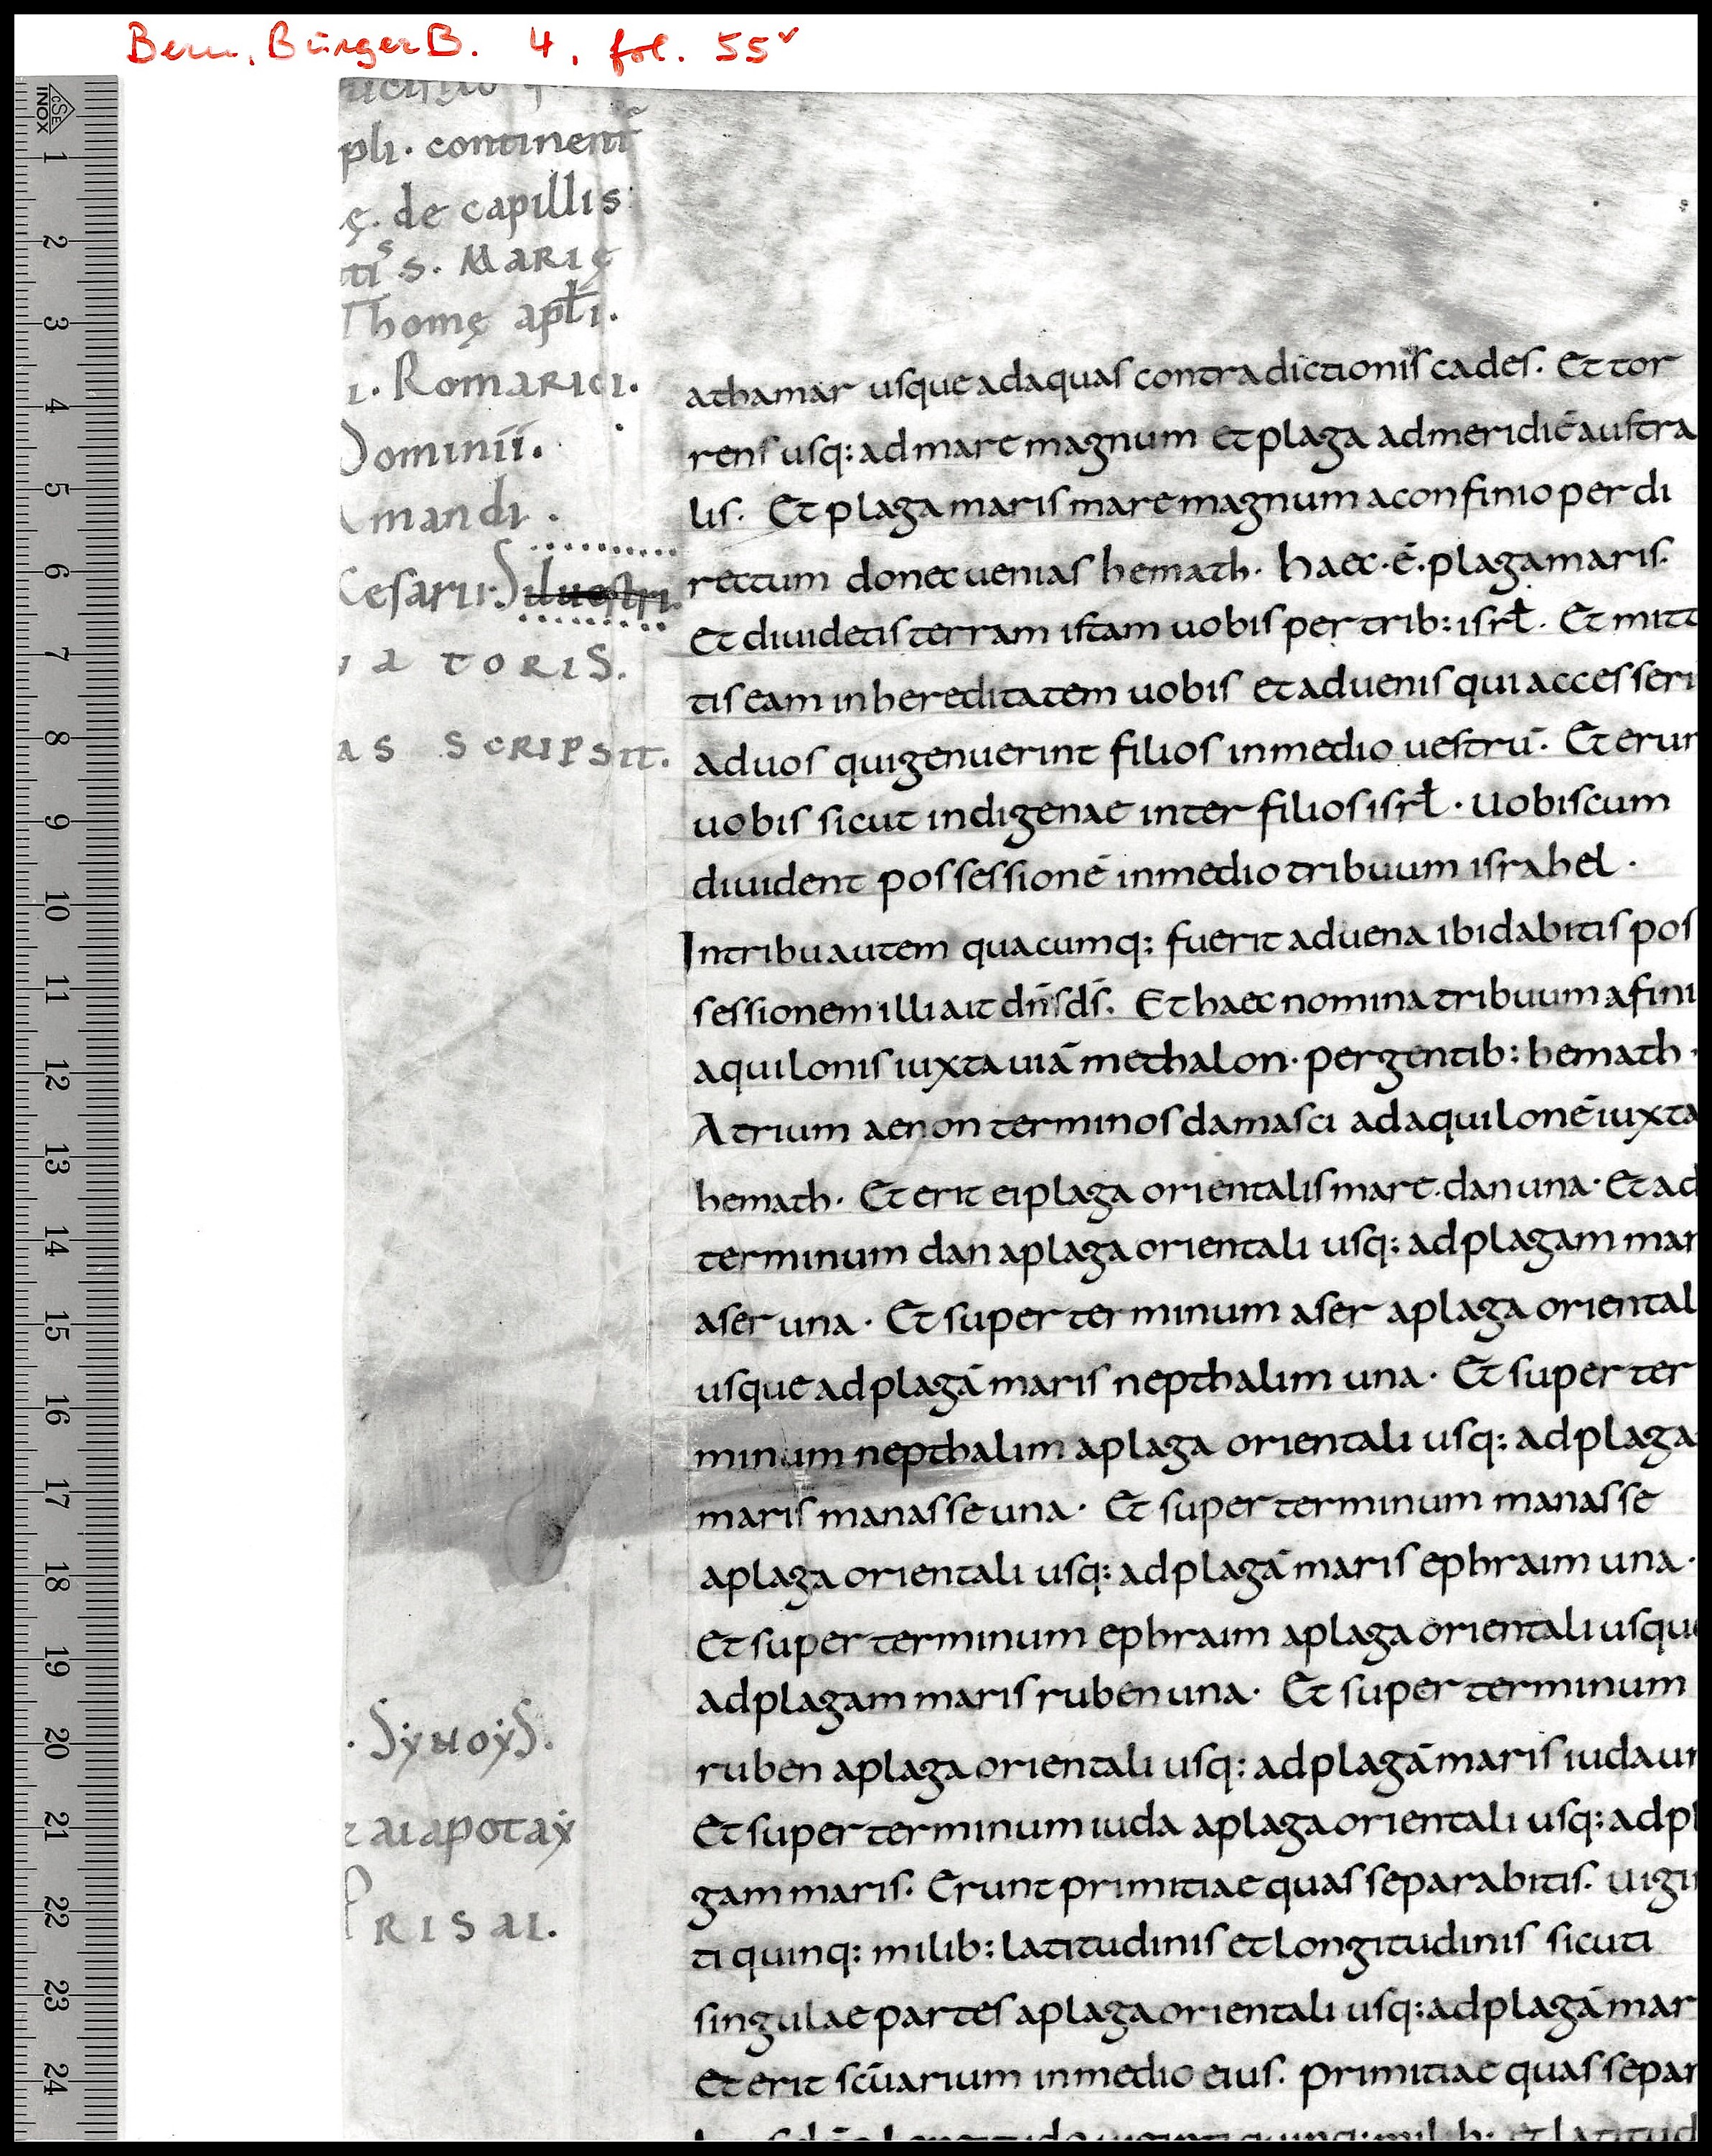 Bern, BürgerB. 4, fol. 55v
pli. continent
ę. de capillis
s. Marię
Thomę apłi.
i. Romarici.
Dominii.
mandi.
Cesarii. Siluestri.
a toris.
as scripsit.
athamar usque adaquas contradictionis cades. Et tor
rens usq: ad mare magnum et plaga admeridiē austra
lis. Et plaga maris mare magnum aconfinio per di
rectum donec uenias hemath. haec .ē. plaga maris.
Et diuidetis terram istam uobis per trib: isrł. Et mitt
tis eam in hereditatem uobis et aduenis qui accesseri
aduos qui genuerint filios inmedio uestrū. Et erun
uobis sicut indigenae inter filios isrł. uobiscum
diuident possessionē inmedio tribuum israhel.
Intribu autem quacumq: fuerit aduena ibi dabitis pos
sessionem illi ait dn̄s ds̄. Et haec nomina tribuum afini
aquilonis iuxta uiā methalon. pergentib: hemath.
Atrium aenon terminos damasci ad aquilonē iuxta
hemath. Et erit ei plaga orientalis mare. dan una. Et ad
terminum dan aplaga orientali usq: adplagam mar
aser una. Et super terminum aser aplaga oriental
usque adplagā maris nepthalim una. Et super ter
minum nepthalim aplaga orientali usq: adplaga
maris manasse una. Et super terminum manasse
aplaga orientali usq: adplagā maris ephraim una.
Et super terminum ephraim aplaga orientali usque
adplagam maris ruben una. Et super terminum
ruben aplaga orientali usq: adplagā maris iuda un
Et super terminum iuda aplaga orientali usq: adpl
gam maris. Erunt primitiae quas separabitis. uigin
ti quinq: milib: latitudinis et longitudinis sicuti
singulae partes aplaga orientali usq: adplagā mar
Et erit sc̄uarium inmedio eius. primitiae quas separ
. SyNoyS.
aiapotaẏ
Prisai.
CSE
INOX
1
2
3
4
5
6
7
8
9
10
11
12
13
14
15
16
17
18
19
20
21
22
23
24